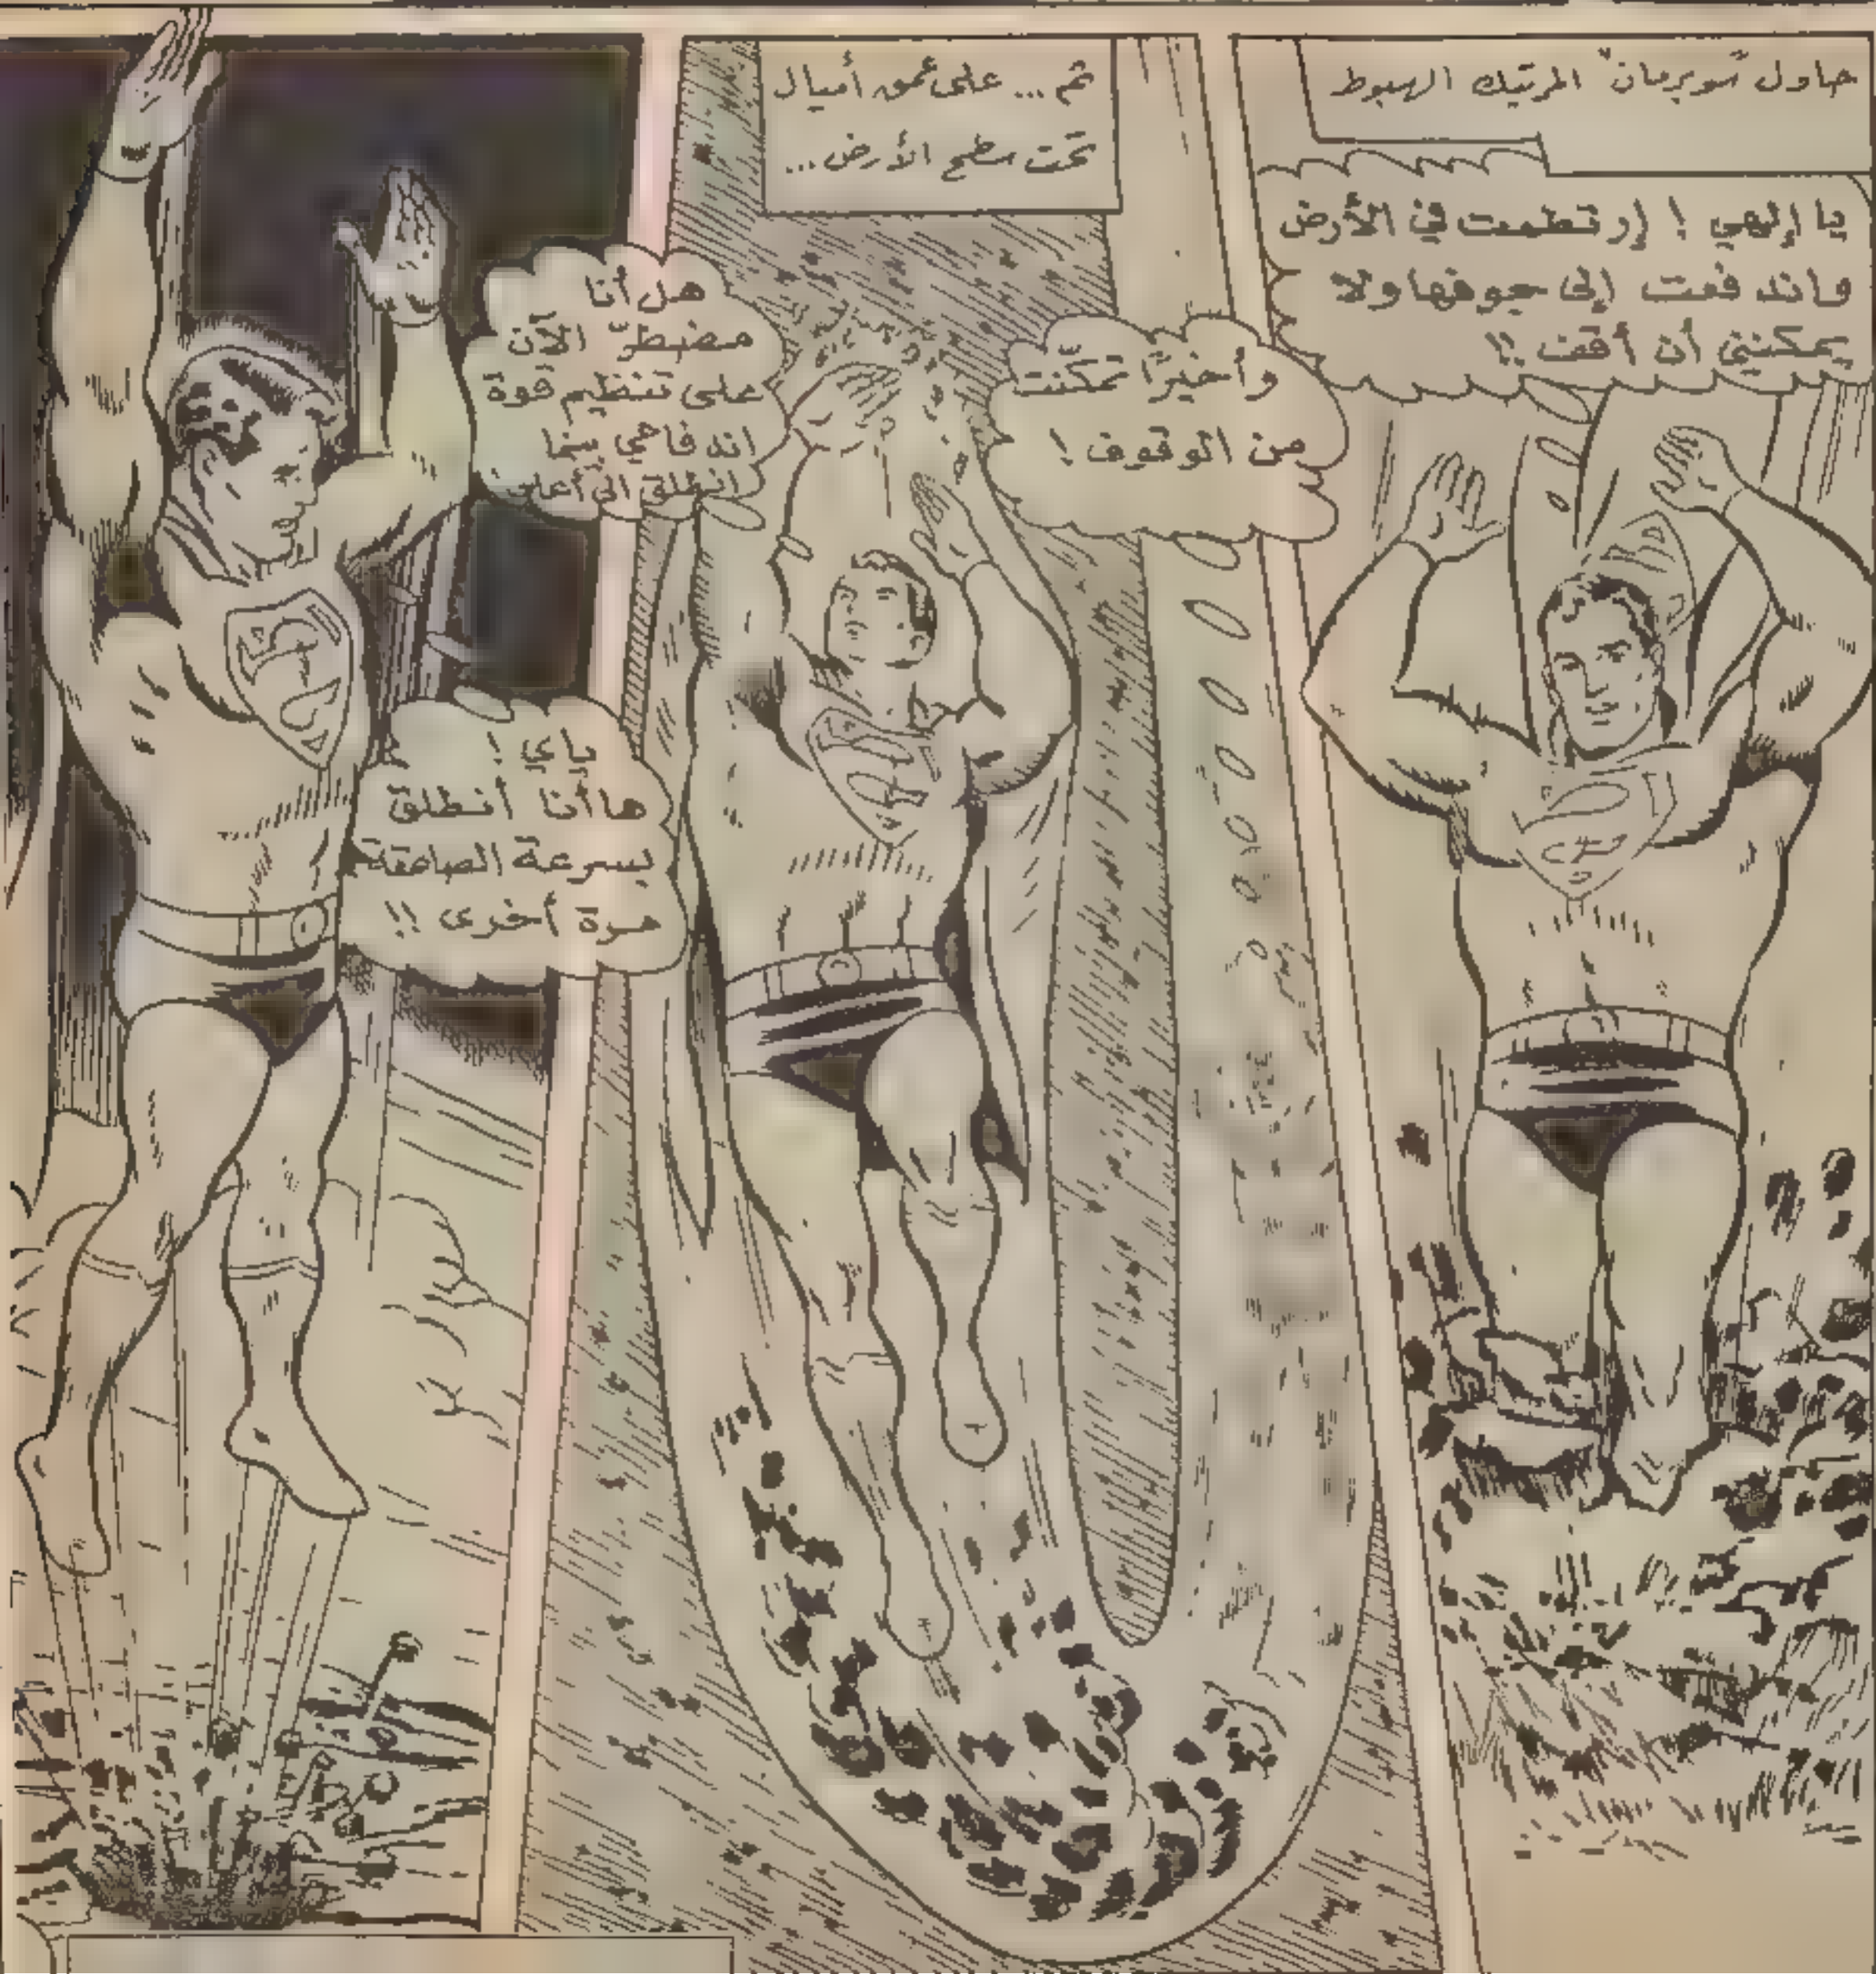 حاول "سوبرمان" المرتبك الهبوط
يا إلهي ! إرتطمت في الأرض
واندفعت إلى جوفها ولا
يمكنني أن أقف !!
ثم ... على عمق أميال
تحت سطح الأرض ...
وأخيرًا تمكّنت
من الوقوف !
هل أنا
مضطرّ الآن
على تنظيم قوة
اندفاعي بينما
انطلق الى أعلى
ها أنا أنطلق
بسرعة الصاعقة
مرة أخرى !!